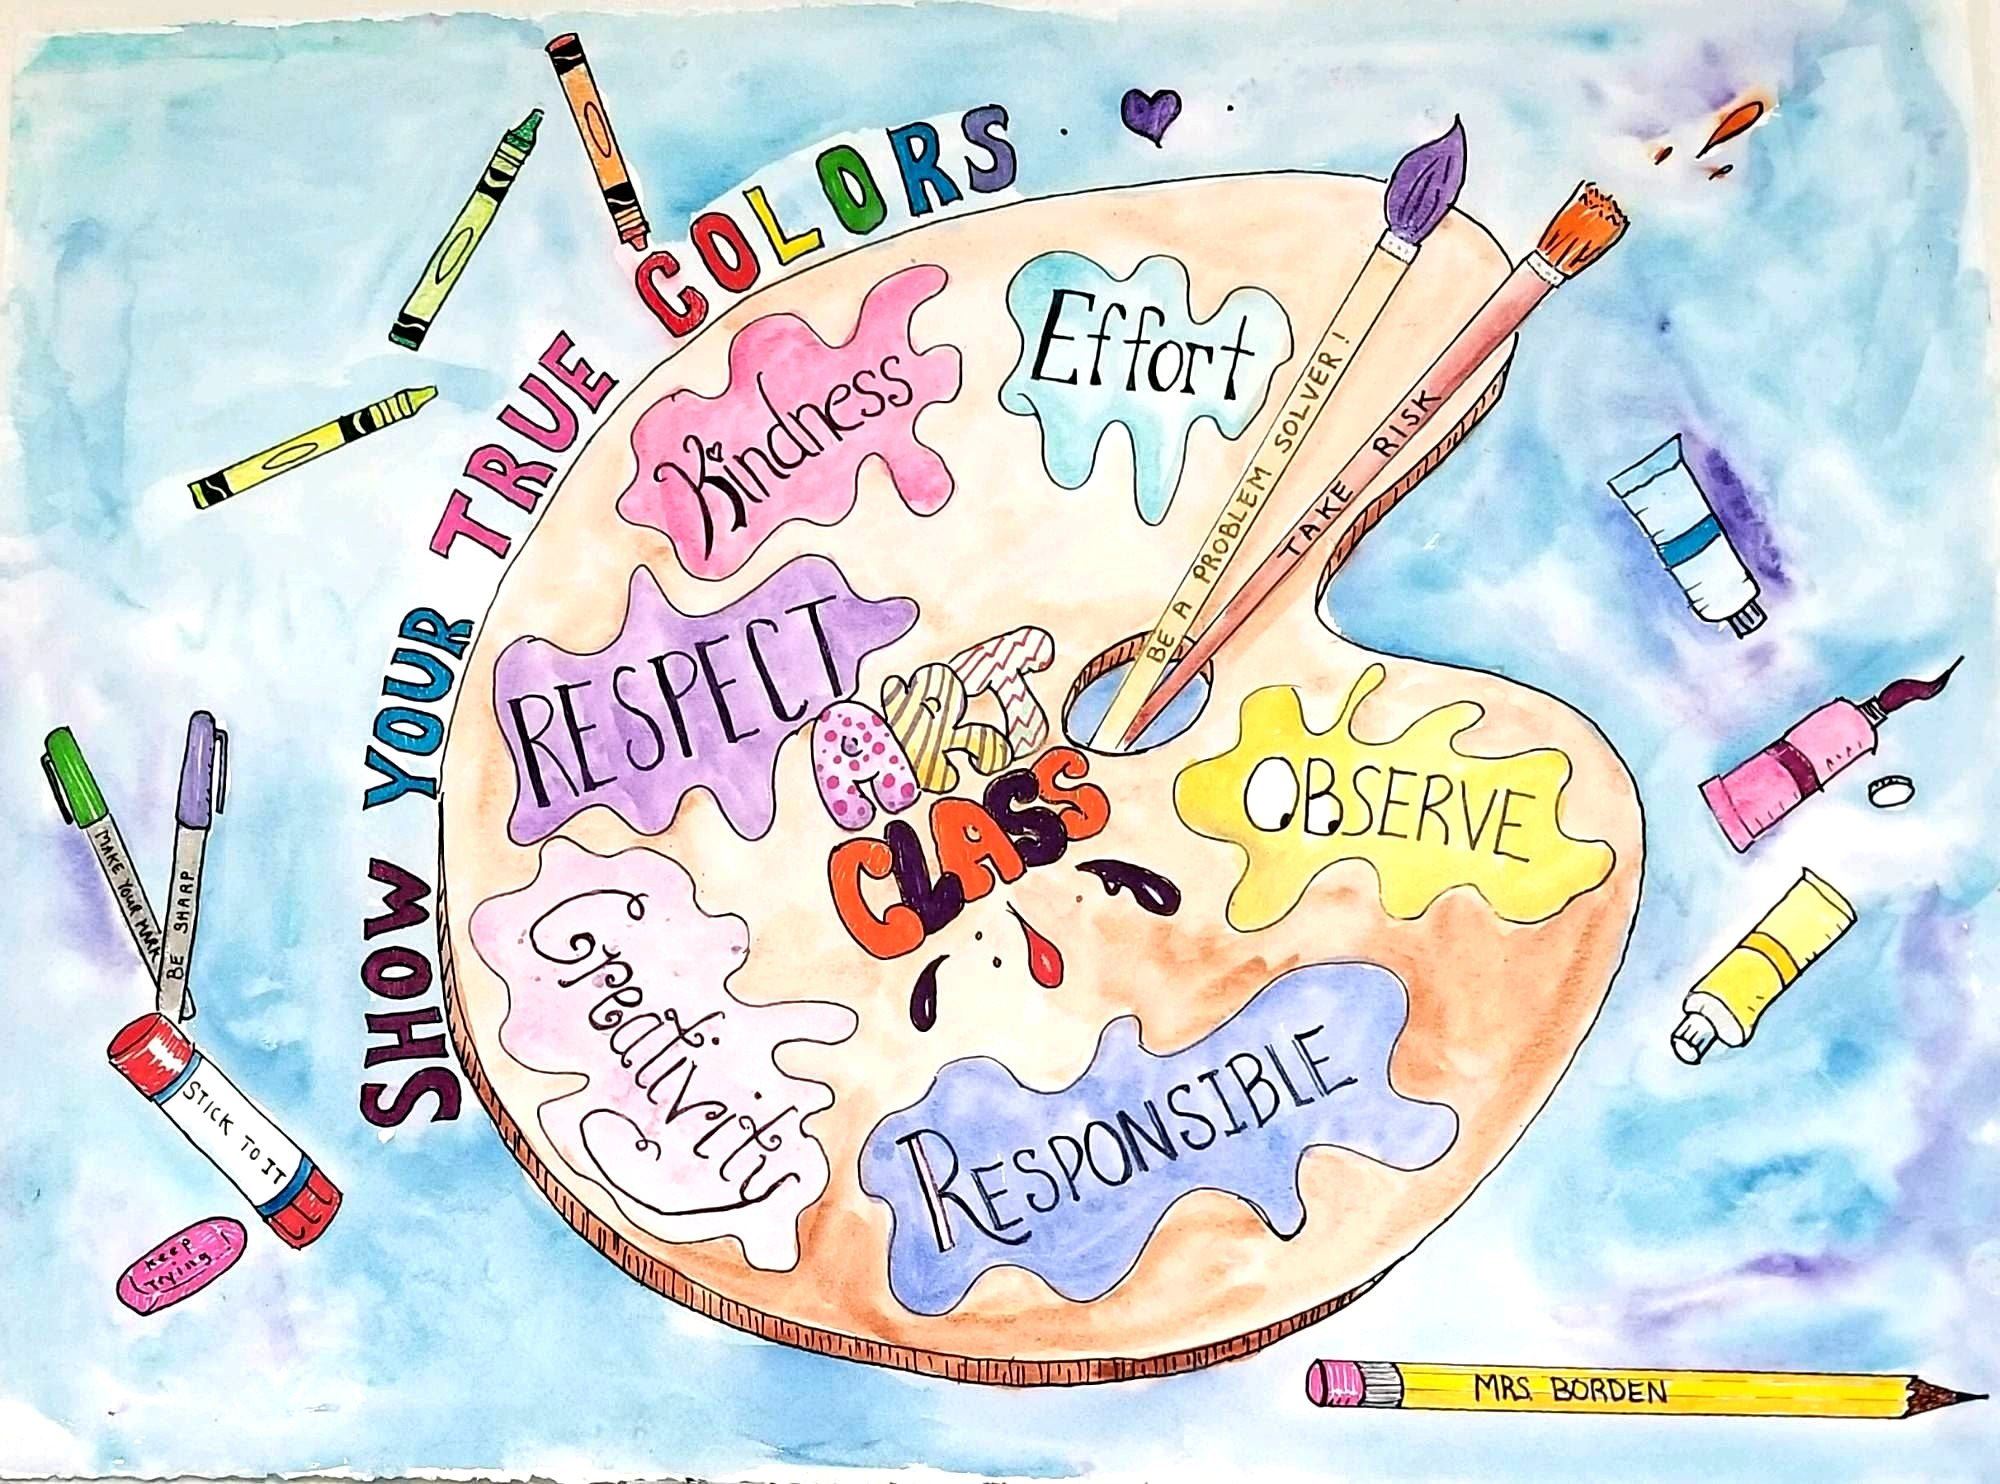 SHOW YOUR TRUE COLORS
Kindness
Effort
BE A PROBLEM SOLVER!
TAKE RISK
RESPECT
ART
CLASS
OBSERVE
Creativity
RESPONSIBLE
MAKE YOUR MARK
BE SHARP
STICK TO IT
Keep
Trying!
MRS. BORDEN